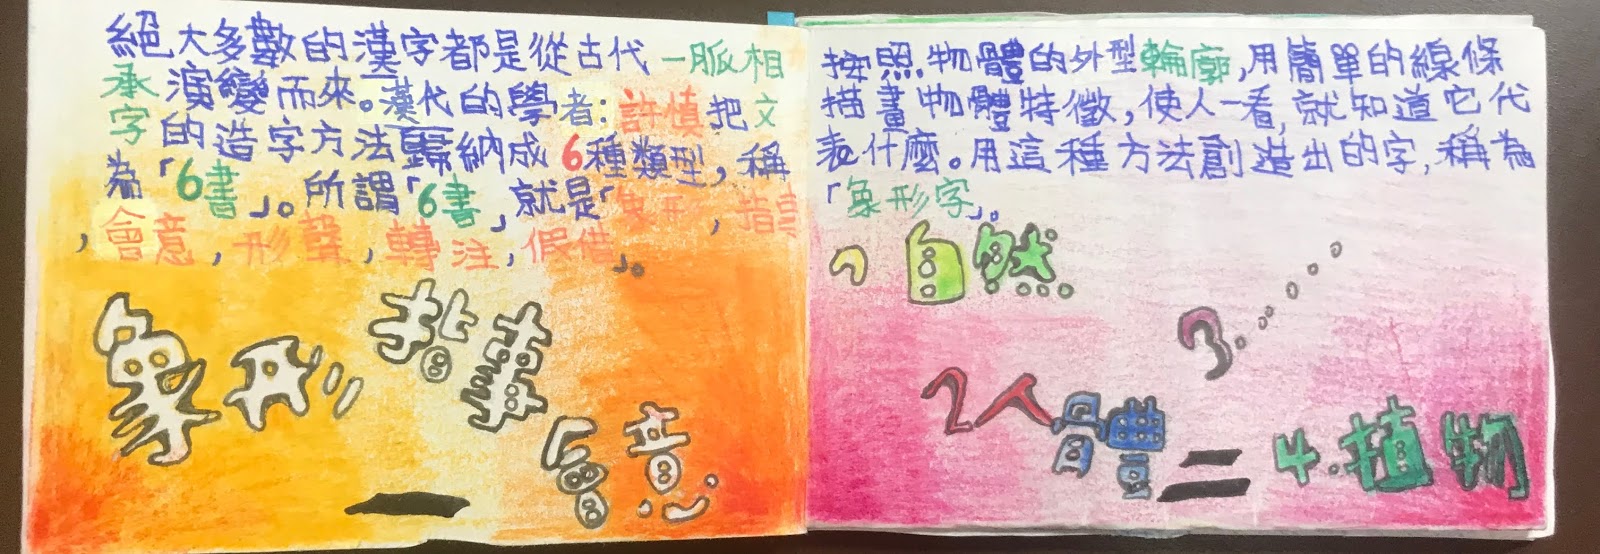 絕大多數的漢字都是從古代一脈相
承演變而來。漢代的學者:許慎把文
字的造字方法歸納成6種類型,稱
為「6書」。所謂「6書」就是「象形,指事
,會意,形聲,轉注,假借」。
象形
指事
會意
一
按照物體的外型輪廓,用簡單的線條
描畫物體特徵,使人一看,就知道它代
表什麼。用這種方法創造出的字,稱為
「象形字」。
1自然
2人體
3.....
4.植物
二